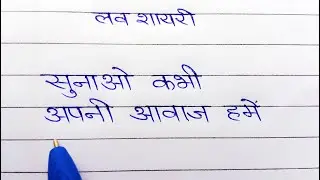 लव शायरी
सुनाओ कभी
अपनी आवाज हमें